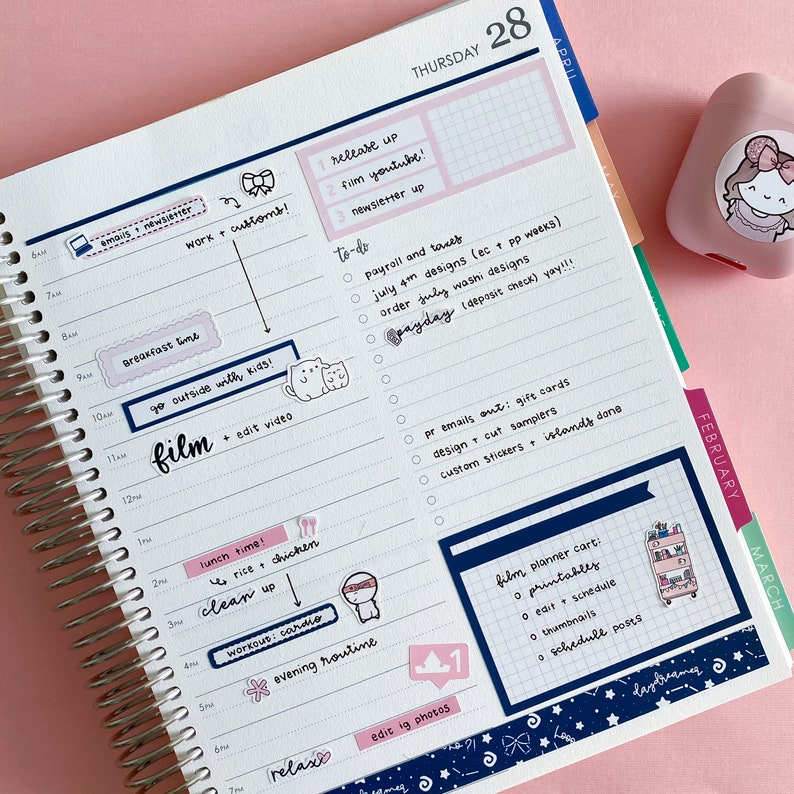 THURSDAY 28
APRIL
MAY
JUNE
FEBRUARY
MARCH
1 release up
2 film youtube!
3 newsletter up
6AM
emails + newsletter
work + customs!
7AM
8AM
Breakfast time
9AM
go outside with kids!
10AM
film + edit video
11AM
12PM
1PM
lunch time!
2PM
rice + chicken
clean up
3PM
workout: cardio
4PM
evening routine
1
5PM
edit ig photos
6PM
relax
7PM
to-do
payroll and taxes
july 4th designs (ec + pp weeks)
order july washi designs
payday (deposit check) yay!!!
pr emails out: gift cards
design + cut samplers
custom stickers + islands done
film planner cart:
printables
edit + schedule
thumbnails
schedule posts
daydreamer